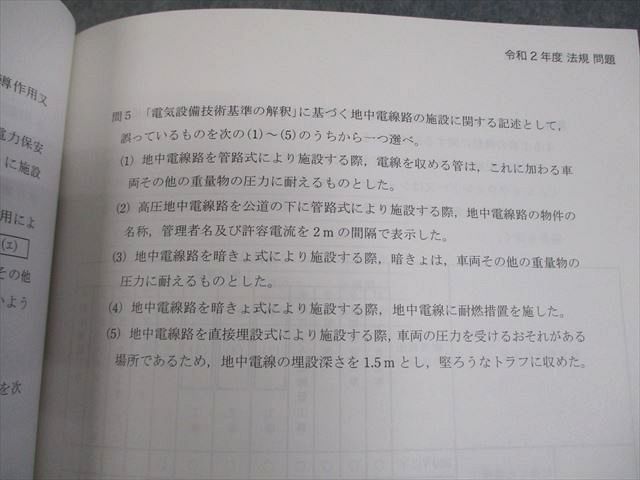 令和2年度 法規 問題
導作用又
電力保安
に施設
用によ
(エ)
その他
いよう
を次
問5 「電気設備技術基準の解釈」に基づく地中電線路の施設に関する記述として,
誤っているものを次の(1)～(5)のうちから一つ選べ。
(1) 地中電線路を管路式により施設する際, 電線を収める管は, これに加わる車
両その他の重量物の圧力に耐えるものとした。
(2) 高圧地中電線路を公道の下に管路式により施設する際, 地中電線路の物件の
名称, 管理者名及び許容電流を2mの間隔で表示した。
(3) 地中電線路を暗きょ式により施設する際, 暗きょは, 車両その他の重量物の
圧力に耐えるものとした。
(4) 地中電線路を暗きょ式により施設する際, 地中電線に耐燃措置を施した。
(5) 地中電線路を直接埋設式により施設する際, 車両の圧力を受けるおそれがある
場所であるため, 地中電線の埋設深さを1.5mとし, 堅ろうなトラフに収めた。